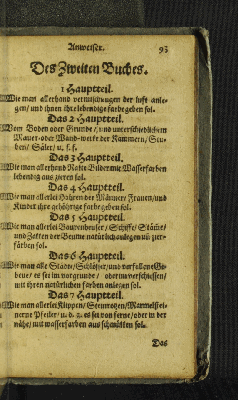 Anweiser. 95
Des Zweiten Buches.
1 Hauptteil.
Wie man allerhand vermischungen der luft anlegen/ und ihnen ihre lebendige farbe geben sol.
Das 2 Hauptteil.
Vom Boden oder Grunde/ und unterschiedlichem
Mauer- oder Wand-werke der Kammern/ Stuben/ Säler/ u. s. f.
Das 3 Hauptteil.
Wie man allerhand Bilder mit Wasserfarben
lebendig aus zieren sol.
Das 4 Hauptteil.
Wie man allerlei der Männer/ Frauen/ und
Kinder ihre gehöhrige farbe geben sol.
Das 5 Hauptteil.
Wie man allerlei Bauerheuser/ Schiffe/ Stämme
und Zakken der Beume natürlich anlegen uñ zier-
färben sol.
Das 6 Hauptteil.
Wie man alle Städte/ Schlösser/ und verfallene Ge-
beue/ es sei im vorgrunde/ oder im verschiessen/
mit ihren natürlichen farben anlegen sol.
Das 7 Hauptteil.
Wie man allerlei Klippen/ Steinrotzen/ Marmelstei-
nerne Pfeiler/ u. d. g. es sei von ferne/ oder in der
nähe/ mit wasserfarben aus schmükken sol.
Das